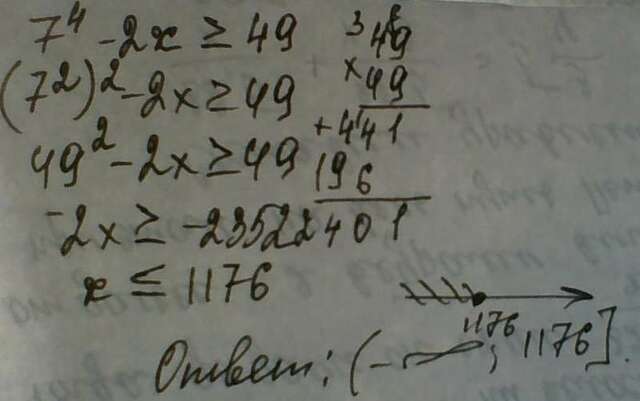 7⁴ - 2x ≥ 49
(7²)² - 2x ≥ 49
49² - 2x ≥ 49
-2x ≥ -2352
x ≤ 1176
3
49
x 49
+ 441
196
2401
1176
Ответ: (-∞; 1176].